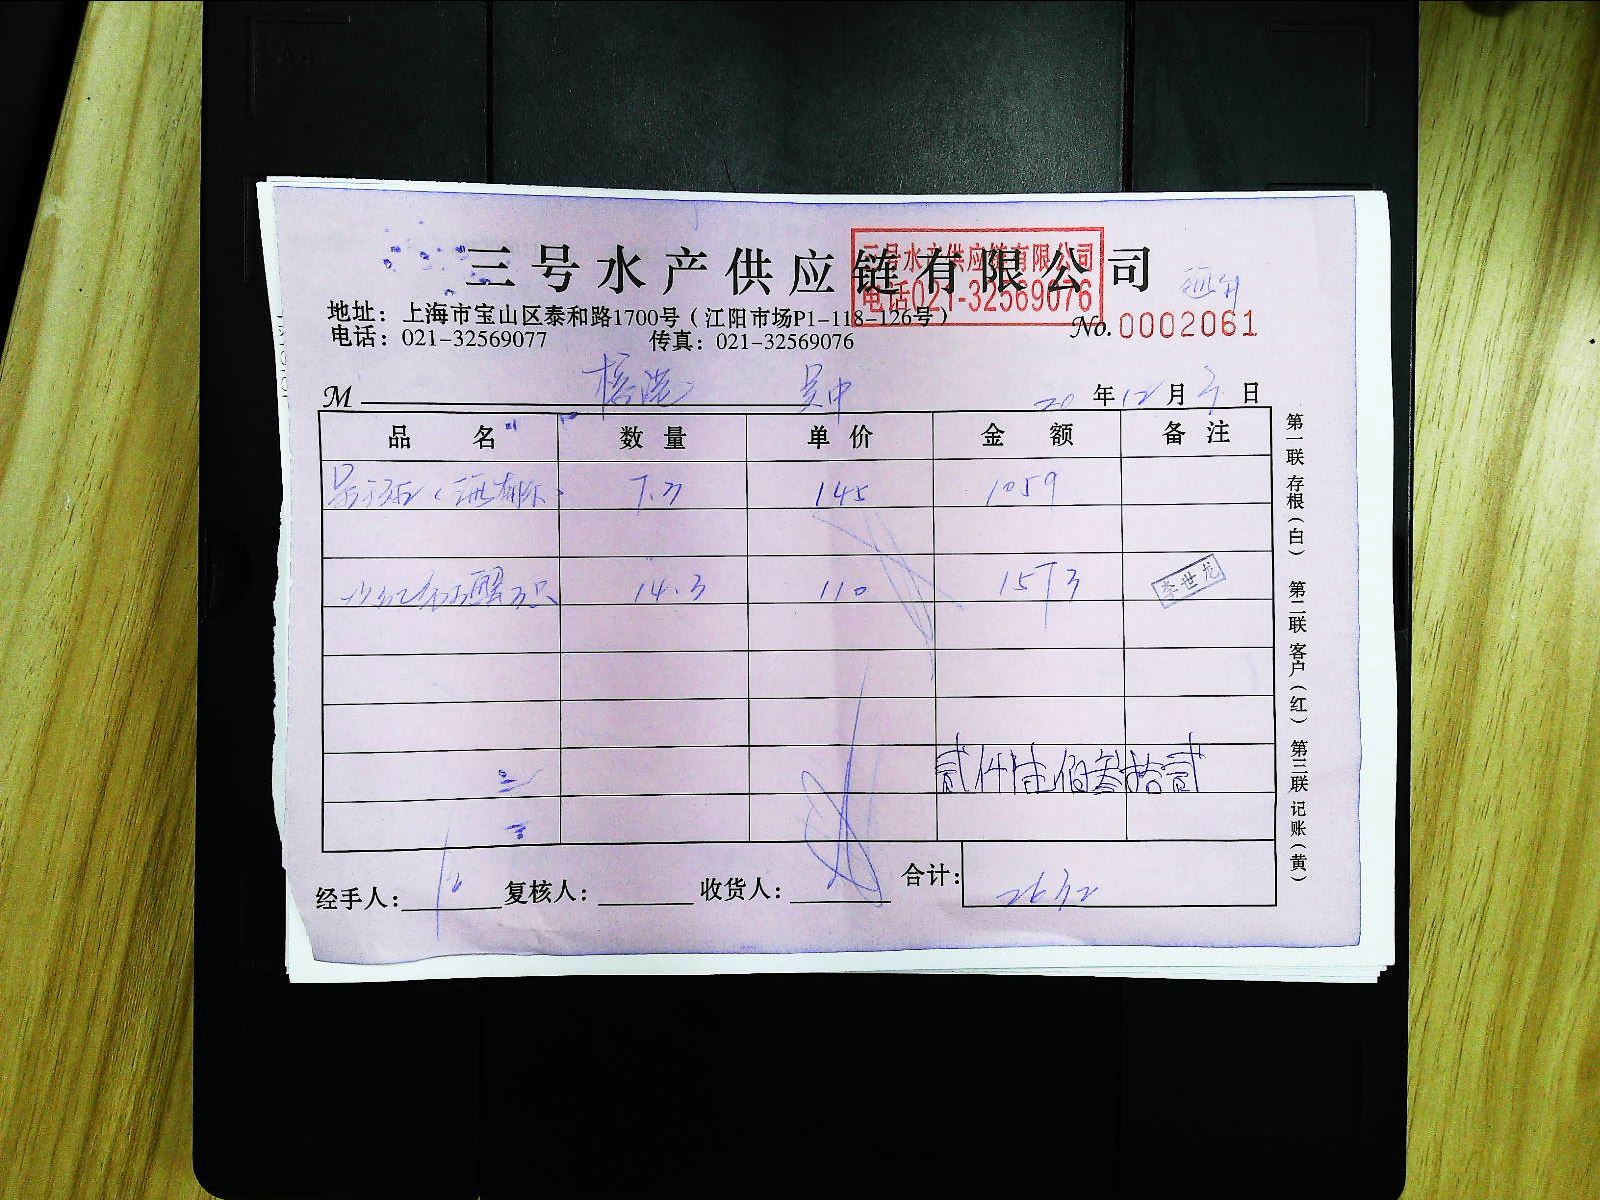 三号水产供应链有限公司
三号水产供应链有限公司
电话021-32569076
地址：上海市宝山区泰和路1700号（江阳市场P1-118-126号）
电话：021-32569077 传真：021-32569076
No. 0002061
M 吴中 20 年 12 月 日
品名 数量 单价 金额 备注
145 1059
蟹 14.3 110 1573 李世龙
贰仟陆佰叁拾贰
经手人： 复核人： 收货人： 合计： 2632
第一联 存根（白） 第二联 客户（红） 第三联 记账（黄）